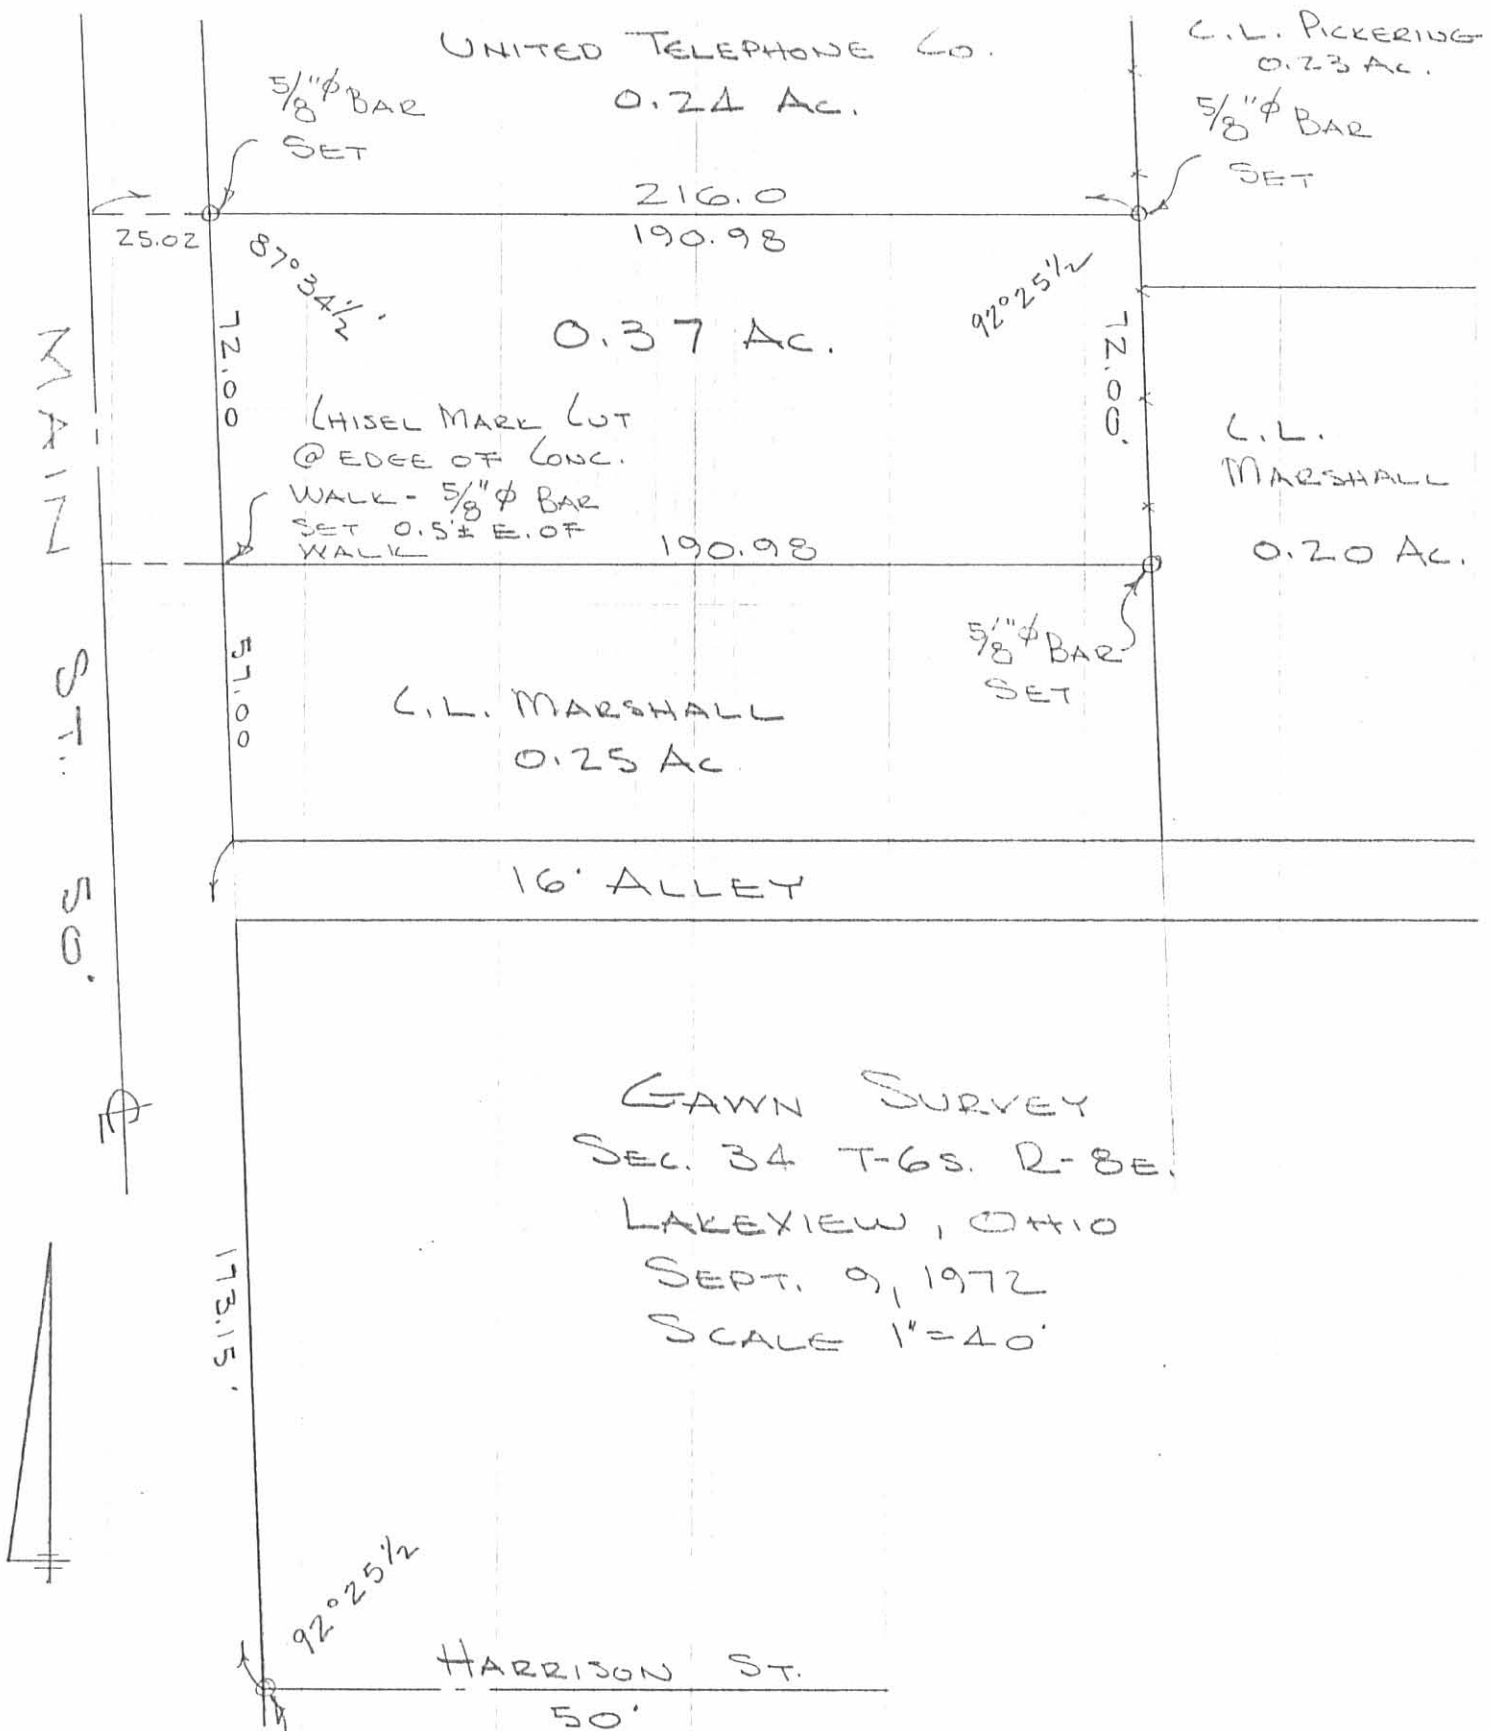 UNITED TELEPHONE CO.
0.24 AC.
C.L. PICKERING
0.23 AC.
5/8"φ BAR
SET
5/8"φ BAR
SET
216.0
190.98
25.02
87°34½'
92°25½
72.00
72.00'
0.37 AC.
CHISEL MARK CUT
@ EDGE OF CONC.
WALK - 5/8"φ BAR
SET 0.5'± E. OF
WALK
190.98
C.L.
MARSHALL
0.20 AC.
5/8"φ BAR
SET
57.00
C.L. MARSHALL
0.25 AC
MAIN ST. 50'
16' ALLEY
GAWN SURVEY
SEC. 34 T-6S. R-8E.
LAKEVIEW, OHIO
SEPT. 9, 1972
SCALE 1"=40'
173.15'
92°25½
HARRISON ST.
50'